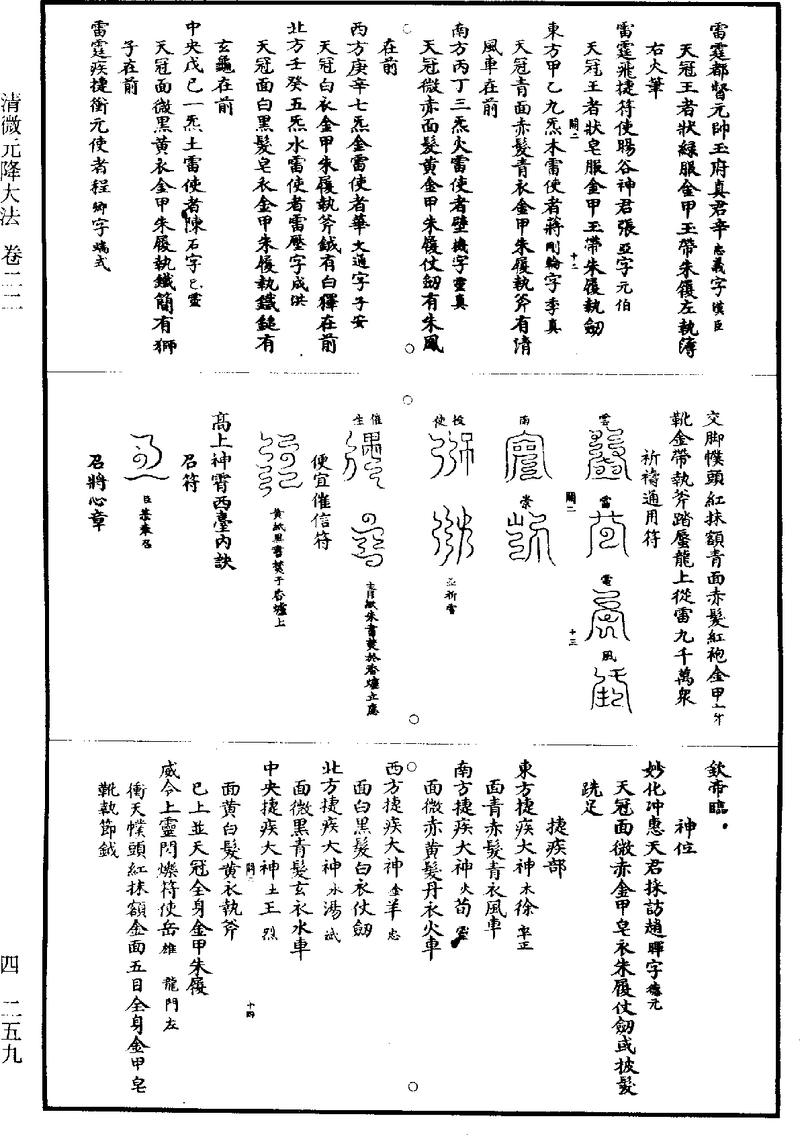 清微元降大法 卷二二
四 二五九
雷霆都督元帥玉府真君辛忠義字漢臣
天冠王者狀綠服金甲玉帶朱履左執薄
右火筆
雷霆飛捷符使暘谷神君張亞字元伯
天冠王者狀皂服金甲玉帶朱履執劒
東方甲乙九炁木雷使者蔣剛輪字季真
天冠青面赤髮青衣金甲朱履執斧有清
風車在前
南方丙丁三炁火雷使者璧機字靈真
天冠微赤面髮黃金甲朱履仗劒有朱鳳
在前
西方庚辛七炁金雷使者華文通字子安
天冠白衣金甲朱履執斧鉞有白獬在前
北方壬癸五炁水雷使者雷壓字成洪
天冠面白黑髮皂衣金甲朱履執鐵鎚有
玄龜在前
中央戊己一炁土雷使者陳石字己靈
天冠面微黑黃衣金甲朱履執鐵簡有獅
子在前
雷霆疾捷衝元使者程卿字端式
十二
交脚幞頭紅抹額青面赤髮紅袍金甲一年
靴金帶執斧踏蜃龍上從雷九千萬衆
祈禱通用符
雲
雷
電
風
十三
雨
祟
役
使
並祈雷
催
生
青紙朱書焚於香爐立應
便宜催信符
黃紙黑書焚于香爐上
高上神霄西臺內訣
召符
臣某奉召
召將心章
欽帝臨
神位
妙化冲惠天君採訪趙暉字德元
天冠面微赤金甲皂衣朱履仗劒或披髮
跣足
捷疾部
東方捷疾大神木徐率正
面青赤髮青衣風車
南方捷疾大神火荀靈
面微赤黃髮丹衣火車
西方捷疾大神金羊忠
面白黑髮白衣仗劒
北方捷疾大神水湯斌
面微黑青髮玄衣水車
中央捷疾大神土王烈
面黃白髮黃衣執斧
已上並天冠全身金甲朱履
十四
威令上靈閃爍符使岳雄 龍門左
衝天幞頭紅抹額金面五目全身金甲皂
靴執節鉞